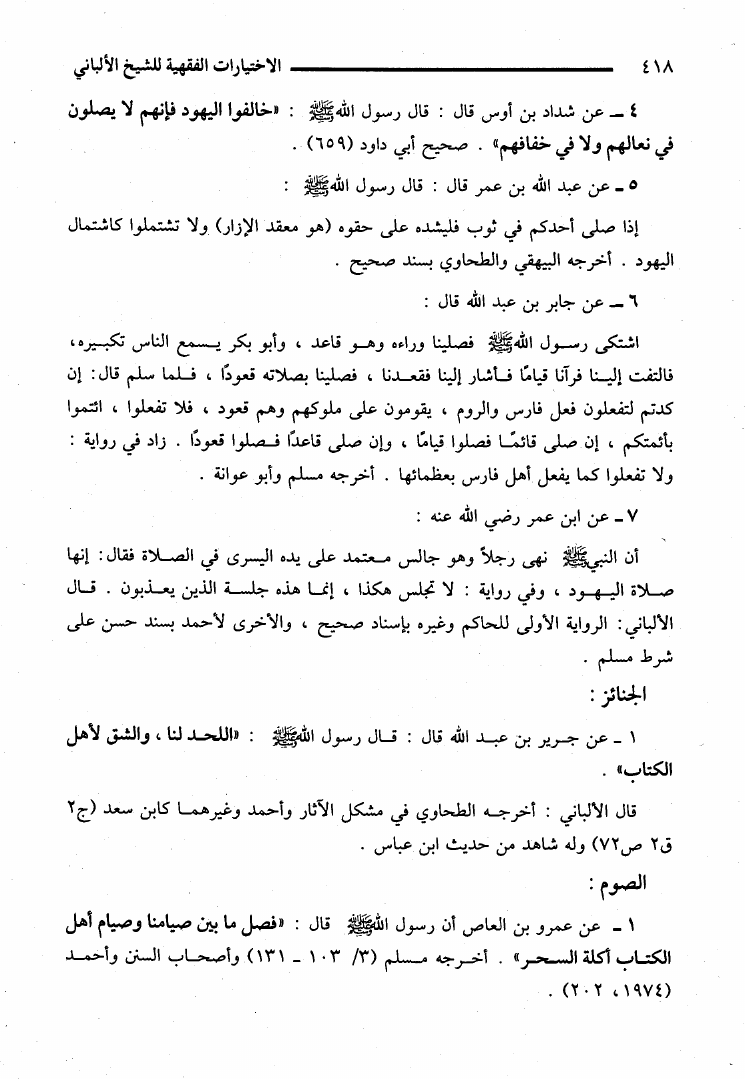 ٤١٨ ـــــــــــــــــــــــــ الاختيارات الفقهية للشيخ الألباني
٤ ــ عن شداد بن أوس قال : قال رسول الله ﷺ : «خالفوا اليهود فإنهم لا يصلون
في نعالهم ولا في خفافهم» . صحيح أبي داود (٦٥٩) .
٥ ــ عن عبد الله بن عمر قال : قال رسول الله ﷺ :
إذا صلى أحدكم في ثوب فليشده على حقوه (هو معقد الإزار) ولا تشتملوا كاشتمال
اليهود . أخرجه البيهقي والطحاوي بسند صحيح .
٦ ــ عن جابر بن عبد الله قال :
اشتكى رسول الله ﷺ فصلينا وراءه وهو قاعد ، وأبو بكر يسمع الناس تكبيره،
فالتفت إلينا فرآنا قيامًا فأشار إلينا فقعدنا ، فصلينا بصلاته قعودًا ، فلما سلم قال: إن
كدتم لتفعلون فعل فارس والروم ، يقومون على ملوكهم وهم قعود ، فلا تفعلوا ، ائتموا
بأئمتكم ، إن صلى قائمًا فصلوا قيامًا ، وإن صلى قاعدًا فصلوا قعودًا . زاد في رواية :
ولا تفعلوا كما يفعل أهل فارس بعظمائها . أخرجه مسلم وأبو عوانة .
٧ ــ عن ابن عمر رضي الله عنه :
أن النبي ﷺ نهى رجلاً وهو جالس معتمد على يده اليسرى في الصلاة فقال: إنها
صلاة اليهود ، وفي رواية : لا تجلس هكذا ، إنما هذه جلسة الذين يعذبون . قال
الألباني: الرواية الأولى للحاكم وغيره بإسناد صحيح ، والأخرى لأحمد بسند حسن على
شرط مسلم .
الجنائز :
١ ــ عن جرير بن عبد الله قال : قال رسول الله ﷺ : «اللحد لنا ، والشق لأهل
الكتاب» .
قال الألباني : أخرجه الطحاوي في مشكل الآثار وأحمد وغيرهما كابن سعد (ج٢
ق٢ ص٧٢) وله شاهد من حديث ابن عباس .
الصوم :
١ ــ عن عمرو بن العاص أن رسول الله ﷺ قال : «فصل ما بين صيامنا وصيام أهل
الكتاب أكلة السحر» . أخرجه مسلم (٣/ ١٠٣ ــ ١٣١) وأصحاب السنن وأحمد
(١٩٧٤، ٢٠٢) .